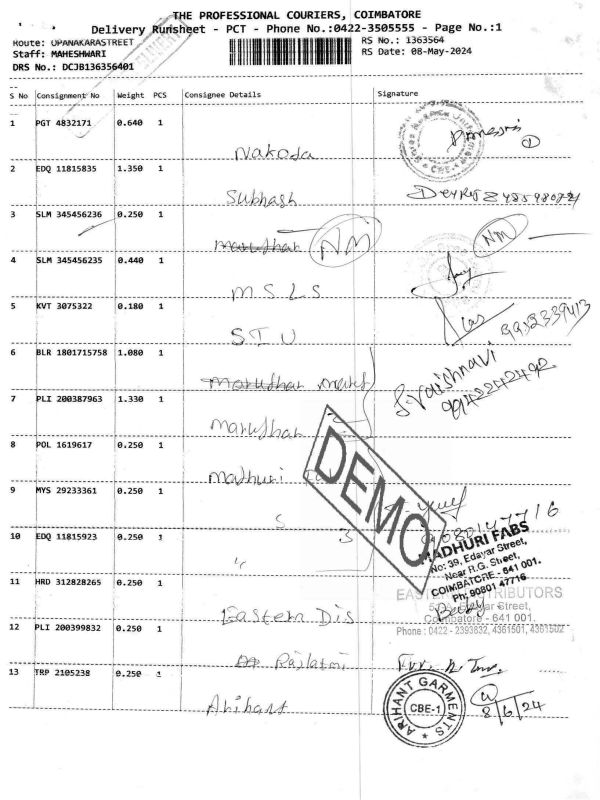 THE PROFESSIONAL COURIERS, COIMBATORE
Delivery Runsheet - PCT - Phone No.:0422-3505555 - Page No.:1
Route: OPANAKARASTREET
RS No.: 1363564
Staff: MAHESHWARI
RS Date: 08-May-2024
DRS No.: DCJB136356401
S No Consignment No Weight PCS Consignee Details Signature
1 PGT 4832171 0.640 1
Nakoda
2 EDQ 11815835 1.350 1
Subhash
3 SLM 345456236 0.250 1
Marudhar NM NM
4 SLM 345456235 0.440 1
MSLS
5 KVT 3075322 0.180 1
STU
6 BLR 1801715758 1.080 1
Marudhar
S.Vaishnavi
7 PLI 200387963 1.330 1
Marudhar
8 POL 1619617 0.250 1
Madhuri
9 MYS 29233361 0.250 1
S
9080147716
10 EDQ 11815923 0.250 1
3
"
DEMO
MADHURI FABS
No: 39, Edayar Street,
Near R.G. Street,
COIMBATORE - 641 001.
Ph: 90801 47716
11 HRD 312828265 0.250 1
Eastern Dis
EASTERN DISTRIBUTORS
Street,
Coimbatore - 641 001,
Phone : 0422 - 2393832, 4361501, 4361502
12 PLI 200399832 0.250 1
Rajlaxmi
13 TRP 2105238 0.250 1
Arihant
ARIHANT GARMENTS
CBE-1
8/6/24